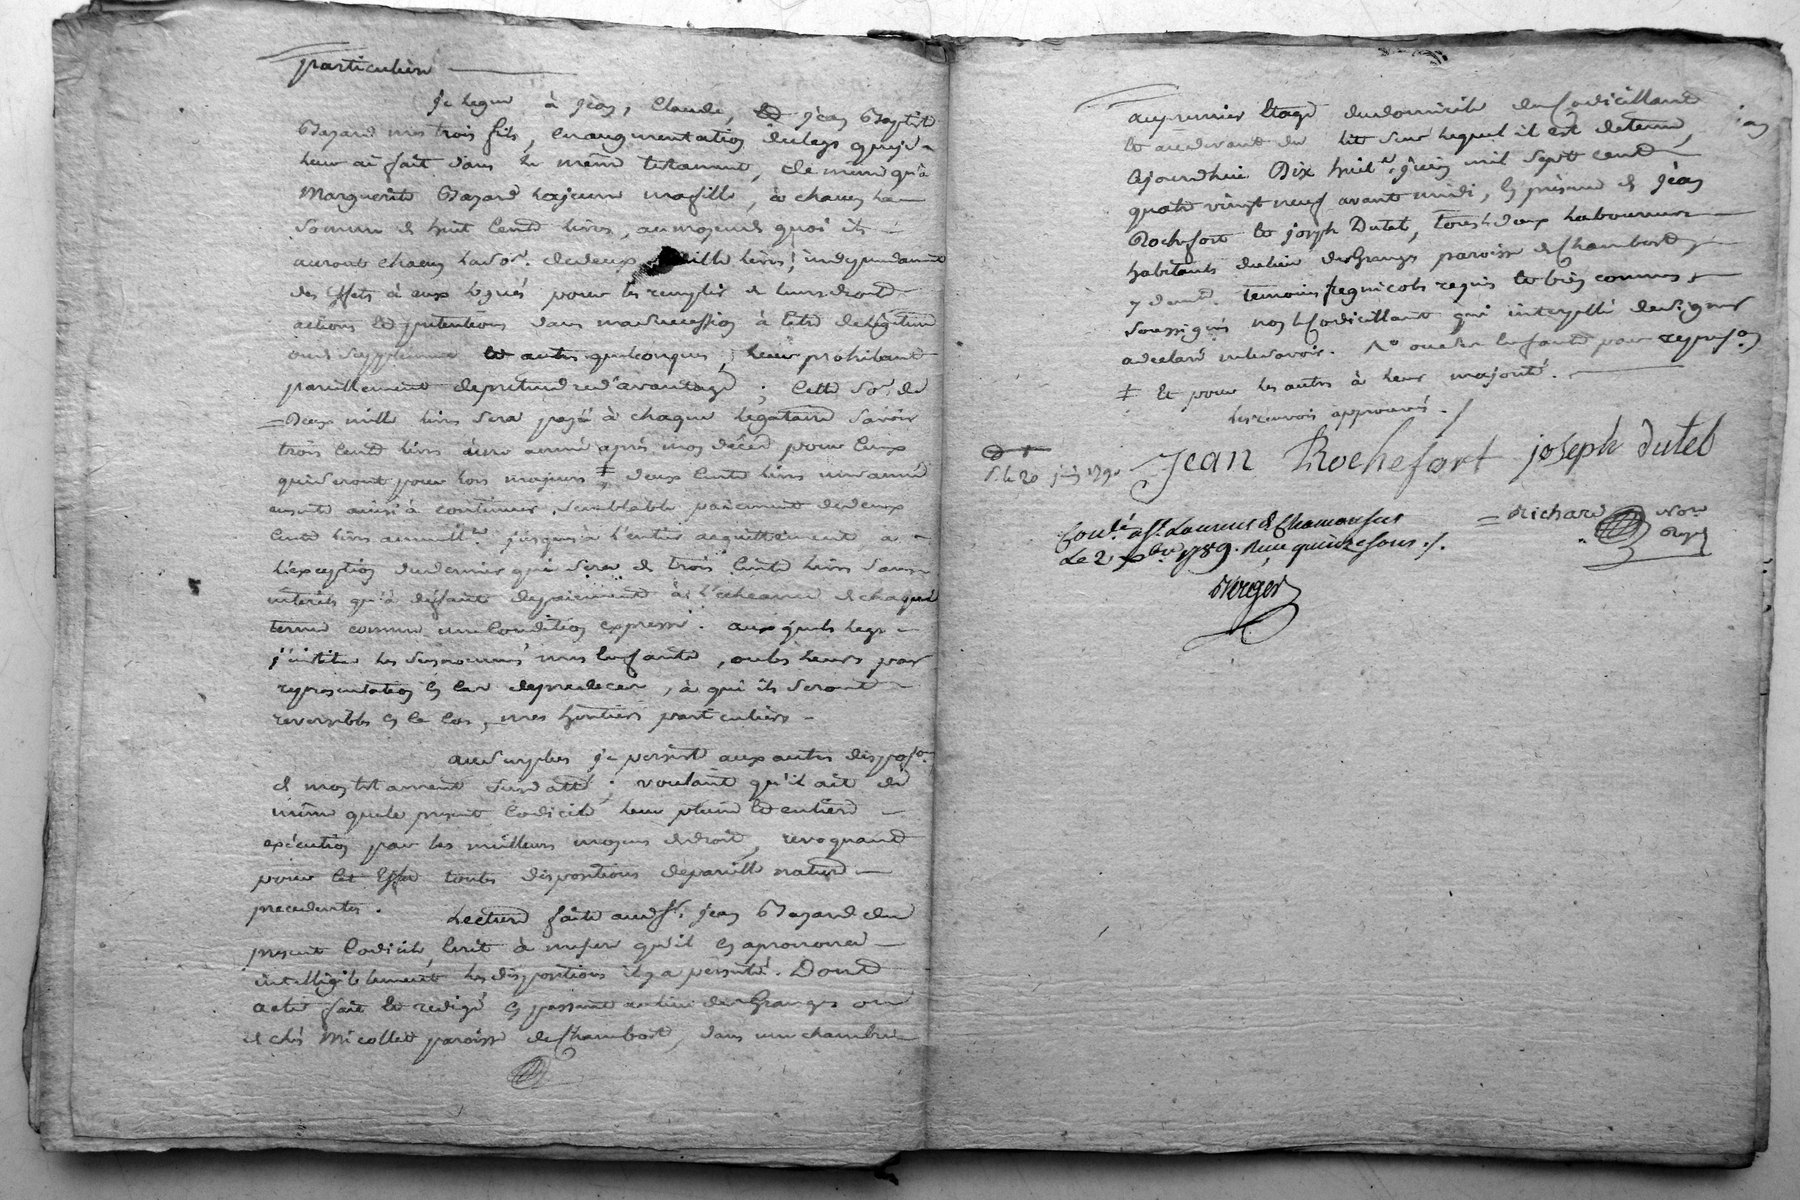 particuliere
je legue à jean, Claude, et jean Baptiste
Bayard mes trois fils, en augmentation du legs que je
leur ai fait dans le meme testament, de meme qu'à
Marguerite Bayard la jeune ma fille, à chacun la
somme de huit cents livres, au moyen de quoi ils
auront chacun la so.e de deux mille livres, independamment
des effets à eux legués pour les remplir de leurs droits
actions et pretentions dans ma succession à titre de legitime
ou de supplement et autres quelconques; leur prohibant
pareillement de pretendre d'avantage; cette so.e de
Deux mille livres sera payée à chaque legataire savoir
trois cents livres une année après mon décès pour ceux
qui seront pour lors majeurs ‡, deux cents livres une année
ensuite ainsi à continuer semblable paiement de deux
cents livres annuell.t jusques à l'entier acquittement, a
l'exception du dernier qui sera de trois cents livres sans
interets qu'à deffaut de paiement à l'echeance de chaque
terme comme une condition expresse. auxquels legs
j'institue les susnommés mes enfants, ou les leurs par
representation en cas de predeces, à qui ils seront
reversibles en ce cas, mes heritiers particuliers
au surplus je persiste aux autres dispos.ons
de mon testament susdatté; voulant qu'il ait de
meme que le present Codicile leur pleine et entiere
exécution par les meilleurs moyens de droit, revoquant
pour cet effet toutes dispositions de pareille nature
precedentes.
Lecture faite aud. s.r jean Bayard du
present Codicile, écrit à mesure qu'il en a prononcé
intelligiblement les dispositions il y a persisté. Dont
acte fait et redigé en passant au lieu des Granges ou
de chés Micollet paroisse de Chambost, dans une chambre
au premier etage du domicile du Codicillant
et au devant du lit sur lequel il est detenu,
Cejourdhui Dix huit juin mil sept cent
quatre vingt neuf avant midi, en presence de jean
Rochefort et joseph Dutel, tous deux laboureurs
habitants du lieu des Granges paroisse de Chambost
y dem.t temoins regnicols requis et bien connus
soussignés non le Codicillant qui interpellé de signer
a declaré ne le savoir. ou de leurs enfants par repres.on
‡ Et pour les autres à leur majorité.
les renvois approuvés.
Jean Rochefort joseph dutel
D.
le 20 juin 1790
= Richard Not.re
Royal
Con.lé a St. Laurent de Chamousset
Le 2 1789. Reçu quinze sous.
Verger